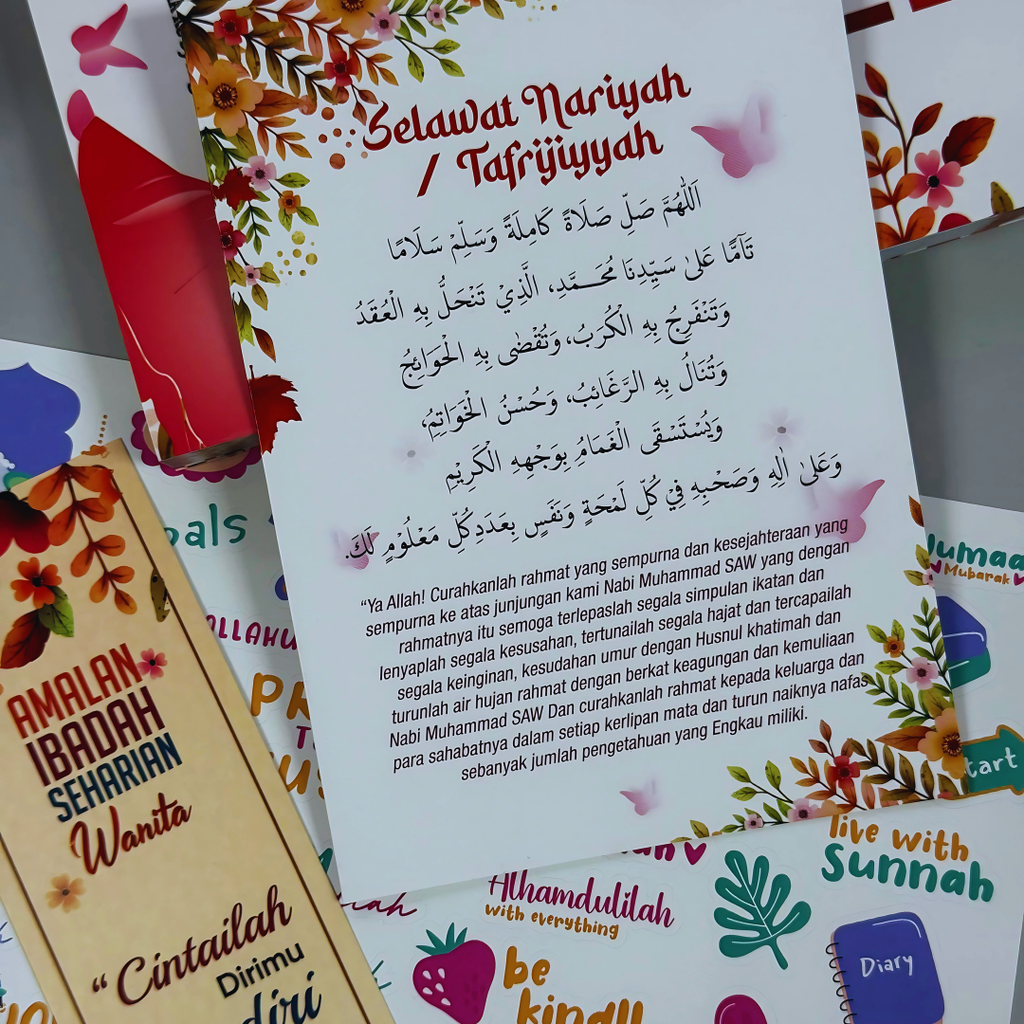 Selawat Nariyah
/ Tafrijiyyah
اَللّٰهُمَّ صَلِّ صَلَاةً كَامِلَةً وَسَلِّمْ سَلَامًا
تَآمًّا عَلىٰ سَيِّدِنَا مُحَمَّدٍ، الَّذِيْ تَنْحَلُّ بِهِ الْعُقَدُ
وَتَنْفَرِجُ بِهِ الْكُرَبُ، وَتُقْضٰى بِهِ الْحَوَائِجُ
وَتُنَالُ بِهِ الرَّغَائِبُ، وَحُسْنُ الْخَوَاتِمِ،
وَيُسْتَسْقَى الْغَمَامُ بِوَجْهِهِ الْكَرِيْمِ
وَعَلىٰ اٰلِهِ وَصَحْبِهِ فِيْ كُلِّ لَمْحَةٍ وَنَفَسٍ بِعَدَدِ كُلِّ مَعْلُوْمٍ لَكَ.
"Ya Allah! Curahkanlah rahmat yang sempurna dan kesejahteraan yang
sempurna ke atas junjungan kami Nabi Muhammad SAW yang dengan
rahmatnya itu semoga terlepaslah segala simpulan ikatan dan
lenyaplah segala kesusahan, tertunailah segala hajat dan tercapailah
segala keinginan, kesudahan umur dengan Husnul khatimah dan
turunlah air hujan rahmat dengan berkat keagungan dan kemuliaan
Nabi Muhammad SAW Dan curahkanlah rahmat kepada keluarga dan
para sahabatnya dalam setiap kerlipan mata dan turun naiknya nafas
sebanyak jumlah pengetahuan yang Engkau miliki.
AMALAN
IBADAH
SEHARIAN
Wanita
"Cintailah
Dirimu
Jumaa
Mubarak
tart
live with
Sunnah
Alhamdulilah
with everything
be
kind!!
Diary